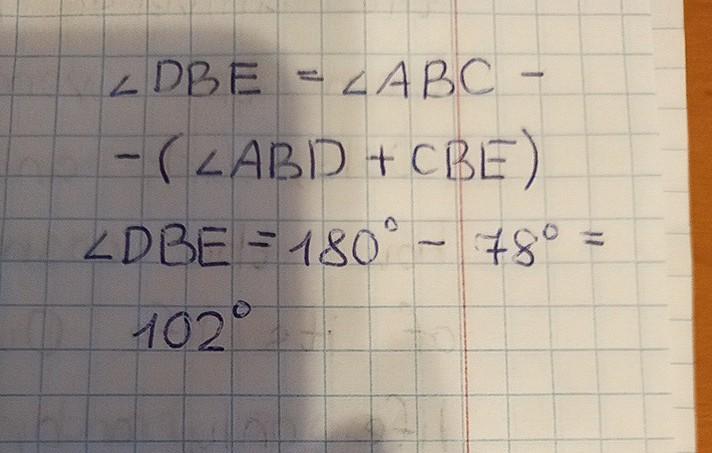 ∠DBE = ∠ABC -
- (∠ABD + CBE)
∠DBE = 180° - 78° =
102°